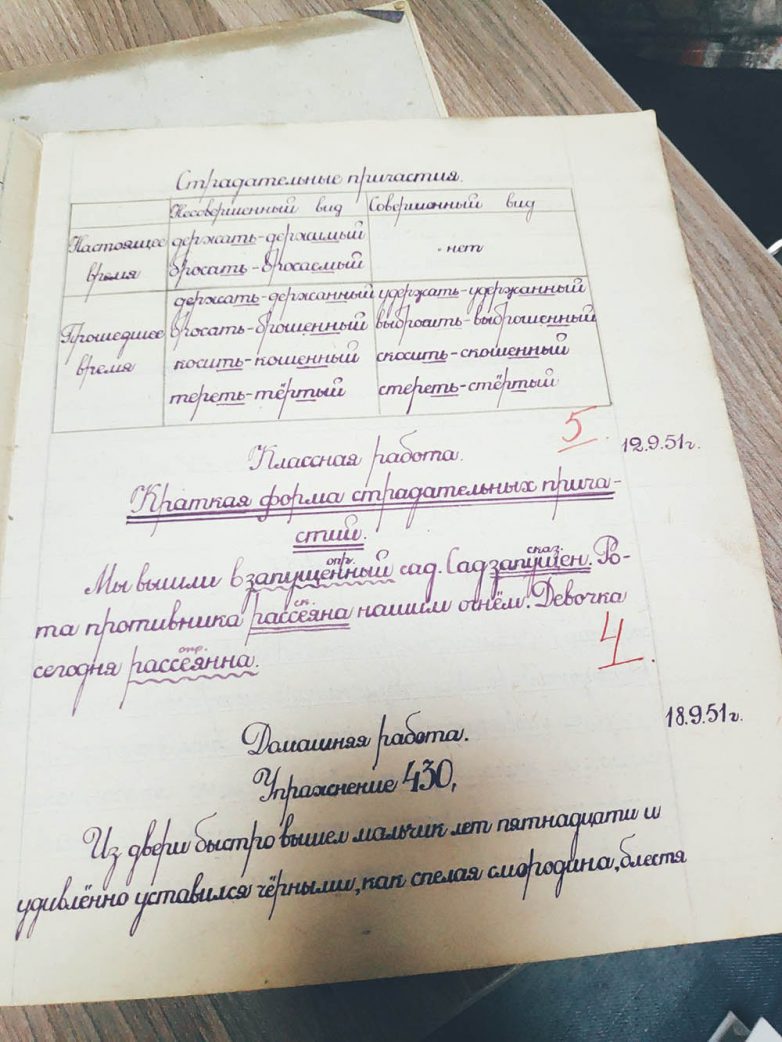 Страдательные причастия.
Несовершенный вид Совершенный вид
Настоящее время
держать-держимый
бросать-бросаемый
нет
Прошедшее время
держать-держанный
бросать-брошенный
косить-кошенный
тереть-тёртый
удержать-удержанный
выбросить-выброшенный
скосить-скошенный
стереть-стёртый
5.
12.9.51г.
Классная работа.
Краткая форма страдательных прича-
стий.
опр. сказ.
Мы вышли в запущенный сад. Сад запущен. Ро-
ск.
та противника рассеяна нашим огнём. Девочка
опр.
сегодня рассеянна.
4.
18.9.51г.
Домашняя работа.
Упражнение 430,
Из двери быстро вышел мальчик лет пятнадцати и
удивлённо уставился чёрными, как спелая смородина, блестя